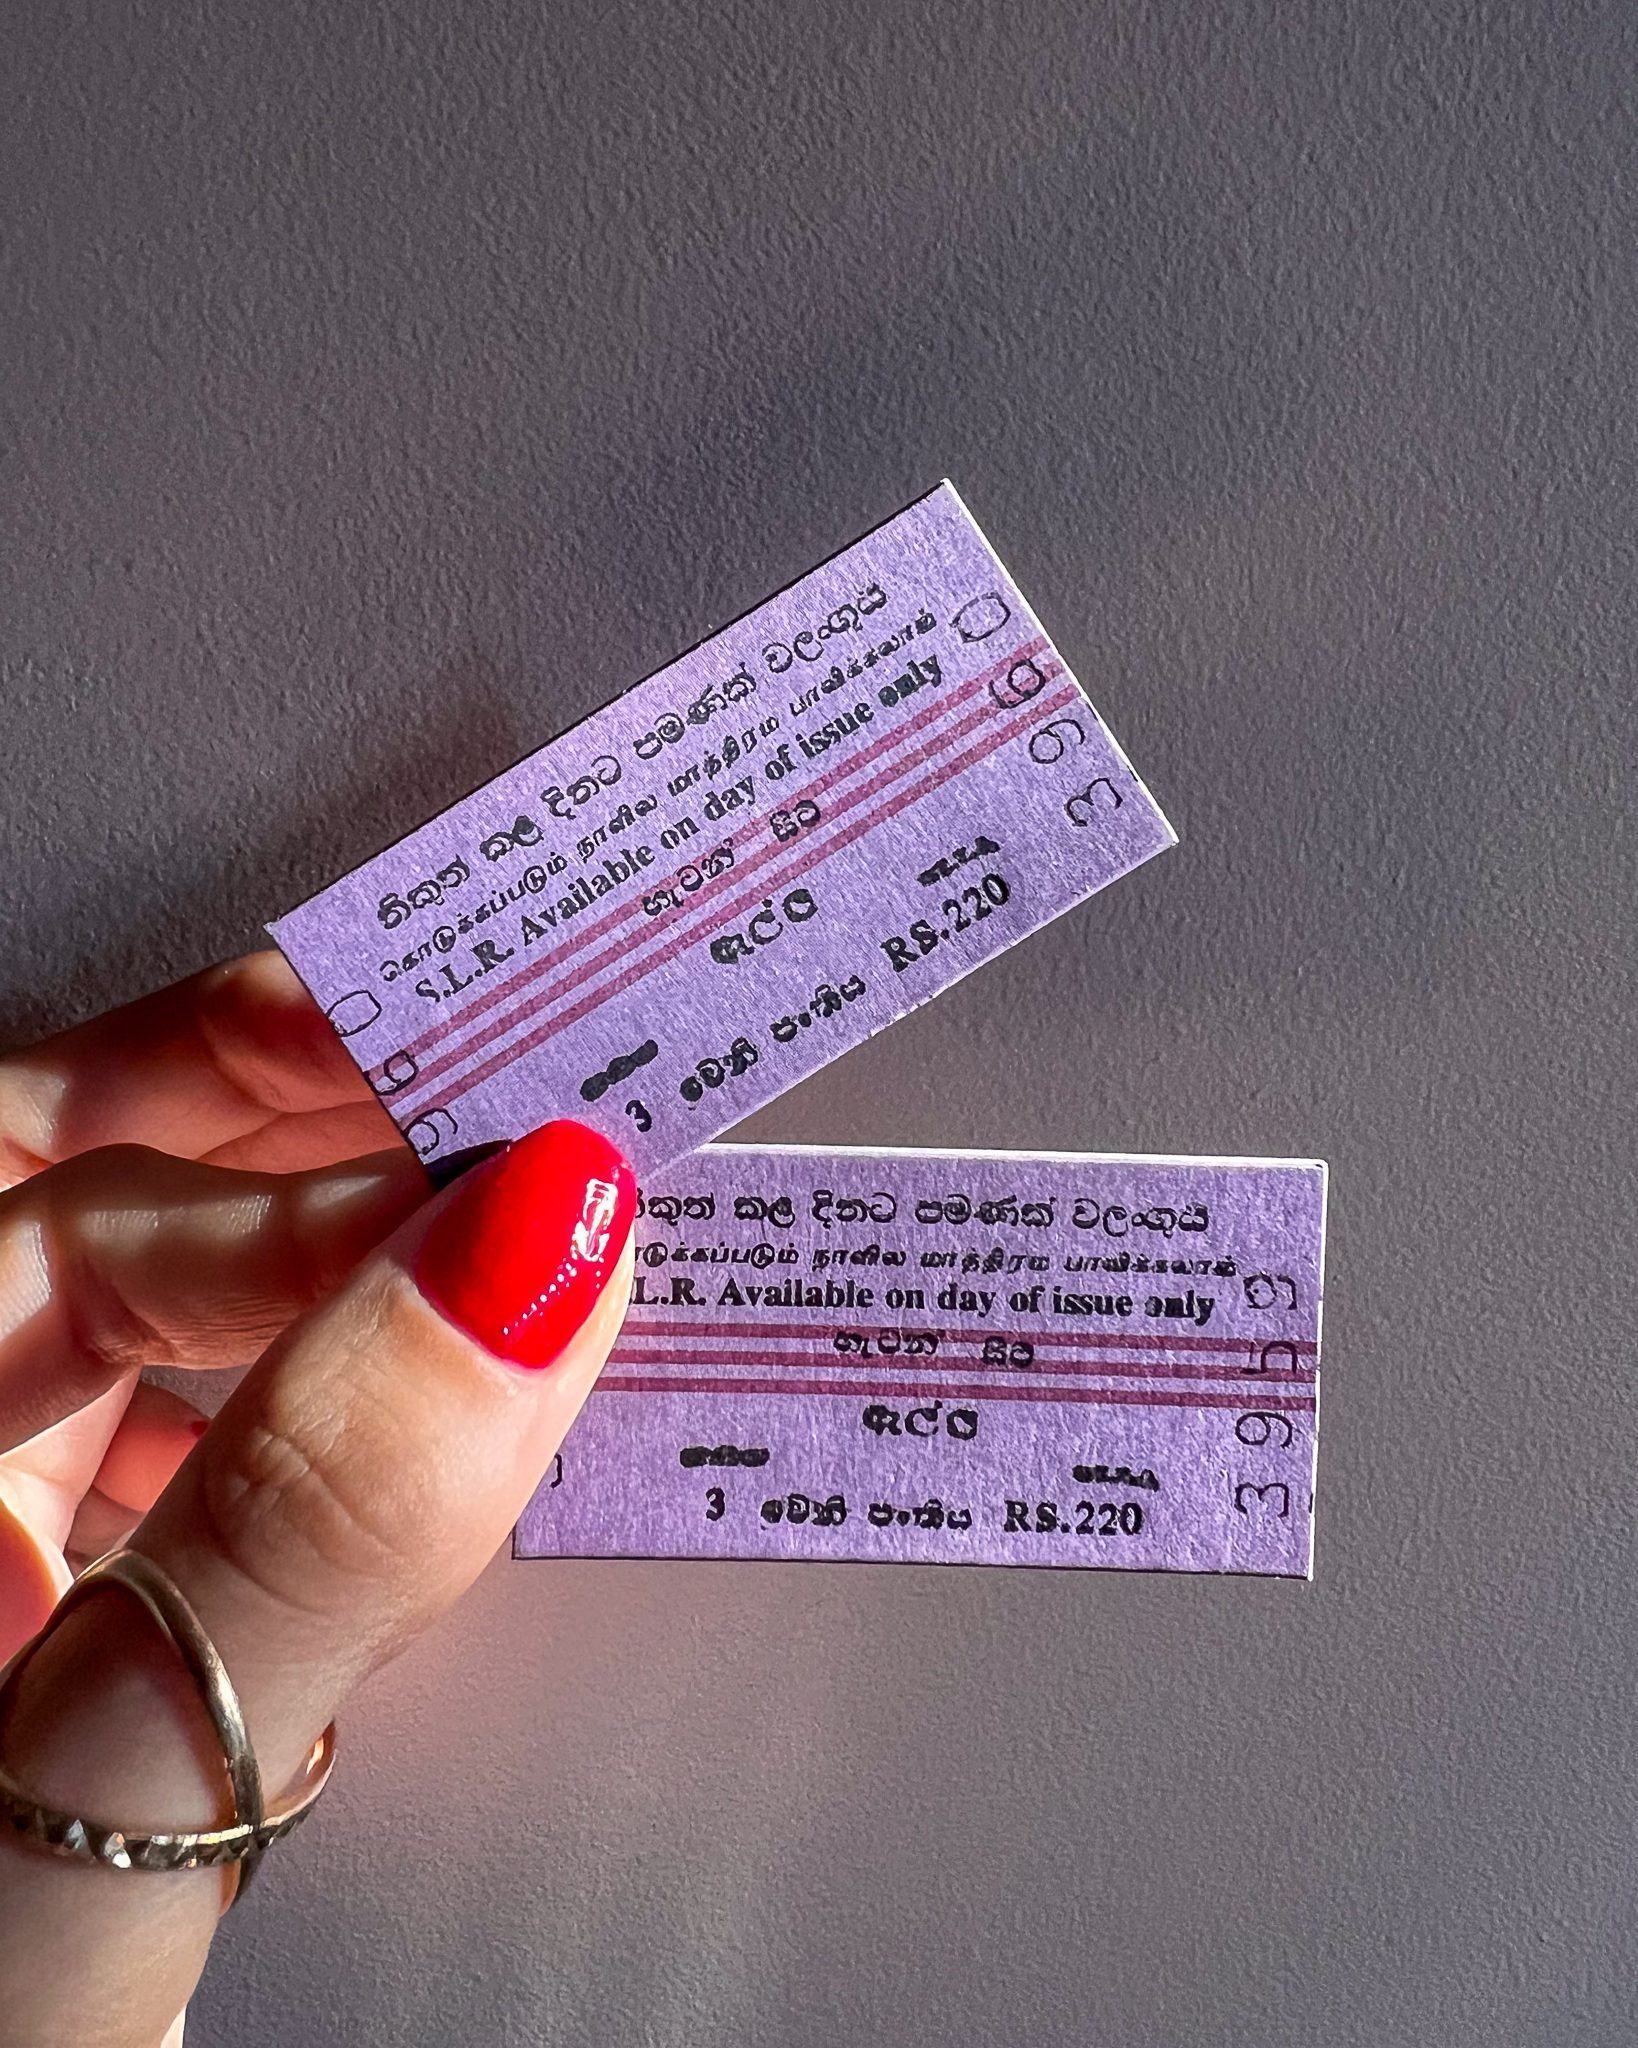 නිකුත් කල දිනට පමණක් වලංගුය
கொடுக்கப்படும் நாளில மாத்திரம பாவிக்கலாம்
S.L.R. Available on day of issue only
හැටන් සිට
ඇල්ල
3 වෙනි පංතිය RS.220
නිකුත් කල දිනට පමණක් වලංගුය
டுக்கப்படும் நாளில மாத்திரம பாவிக்கலாம்
L.R. Available on day of issue only
හැටන් සිට
ඇල්ල
3 වෙනි පංතිය RS.220